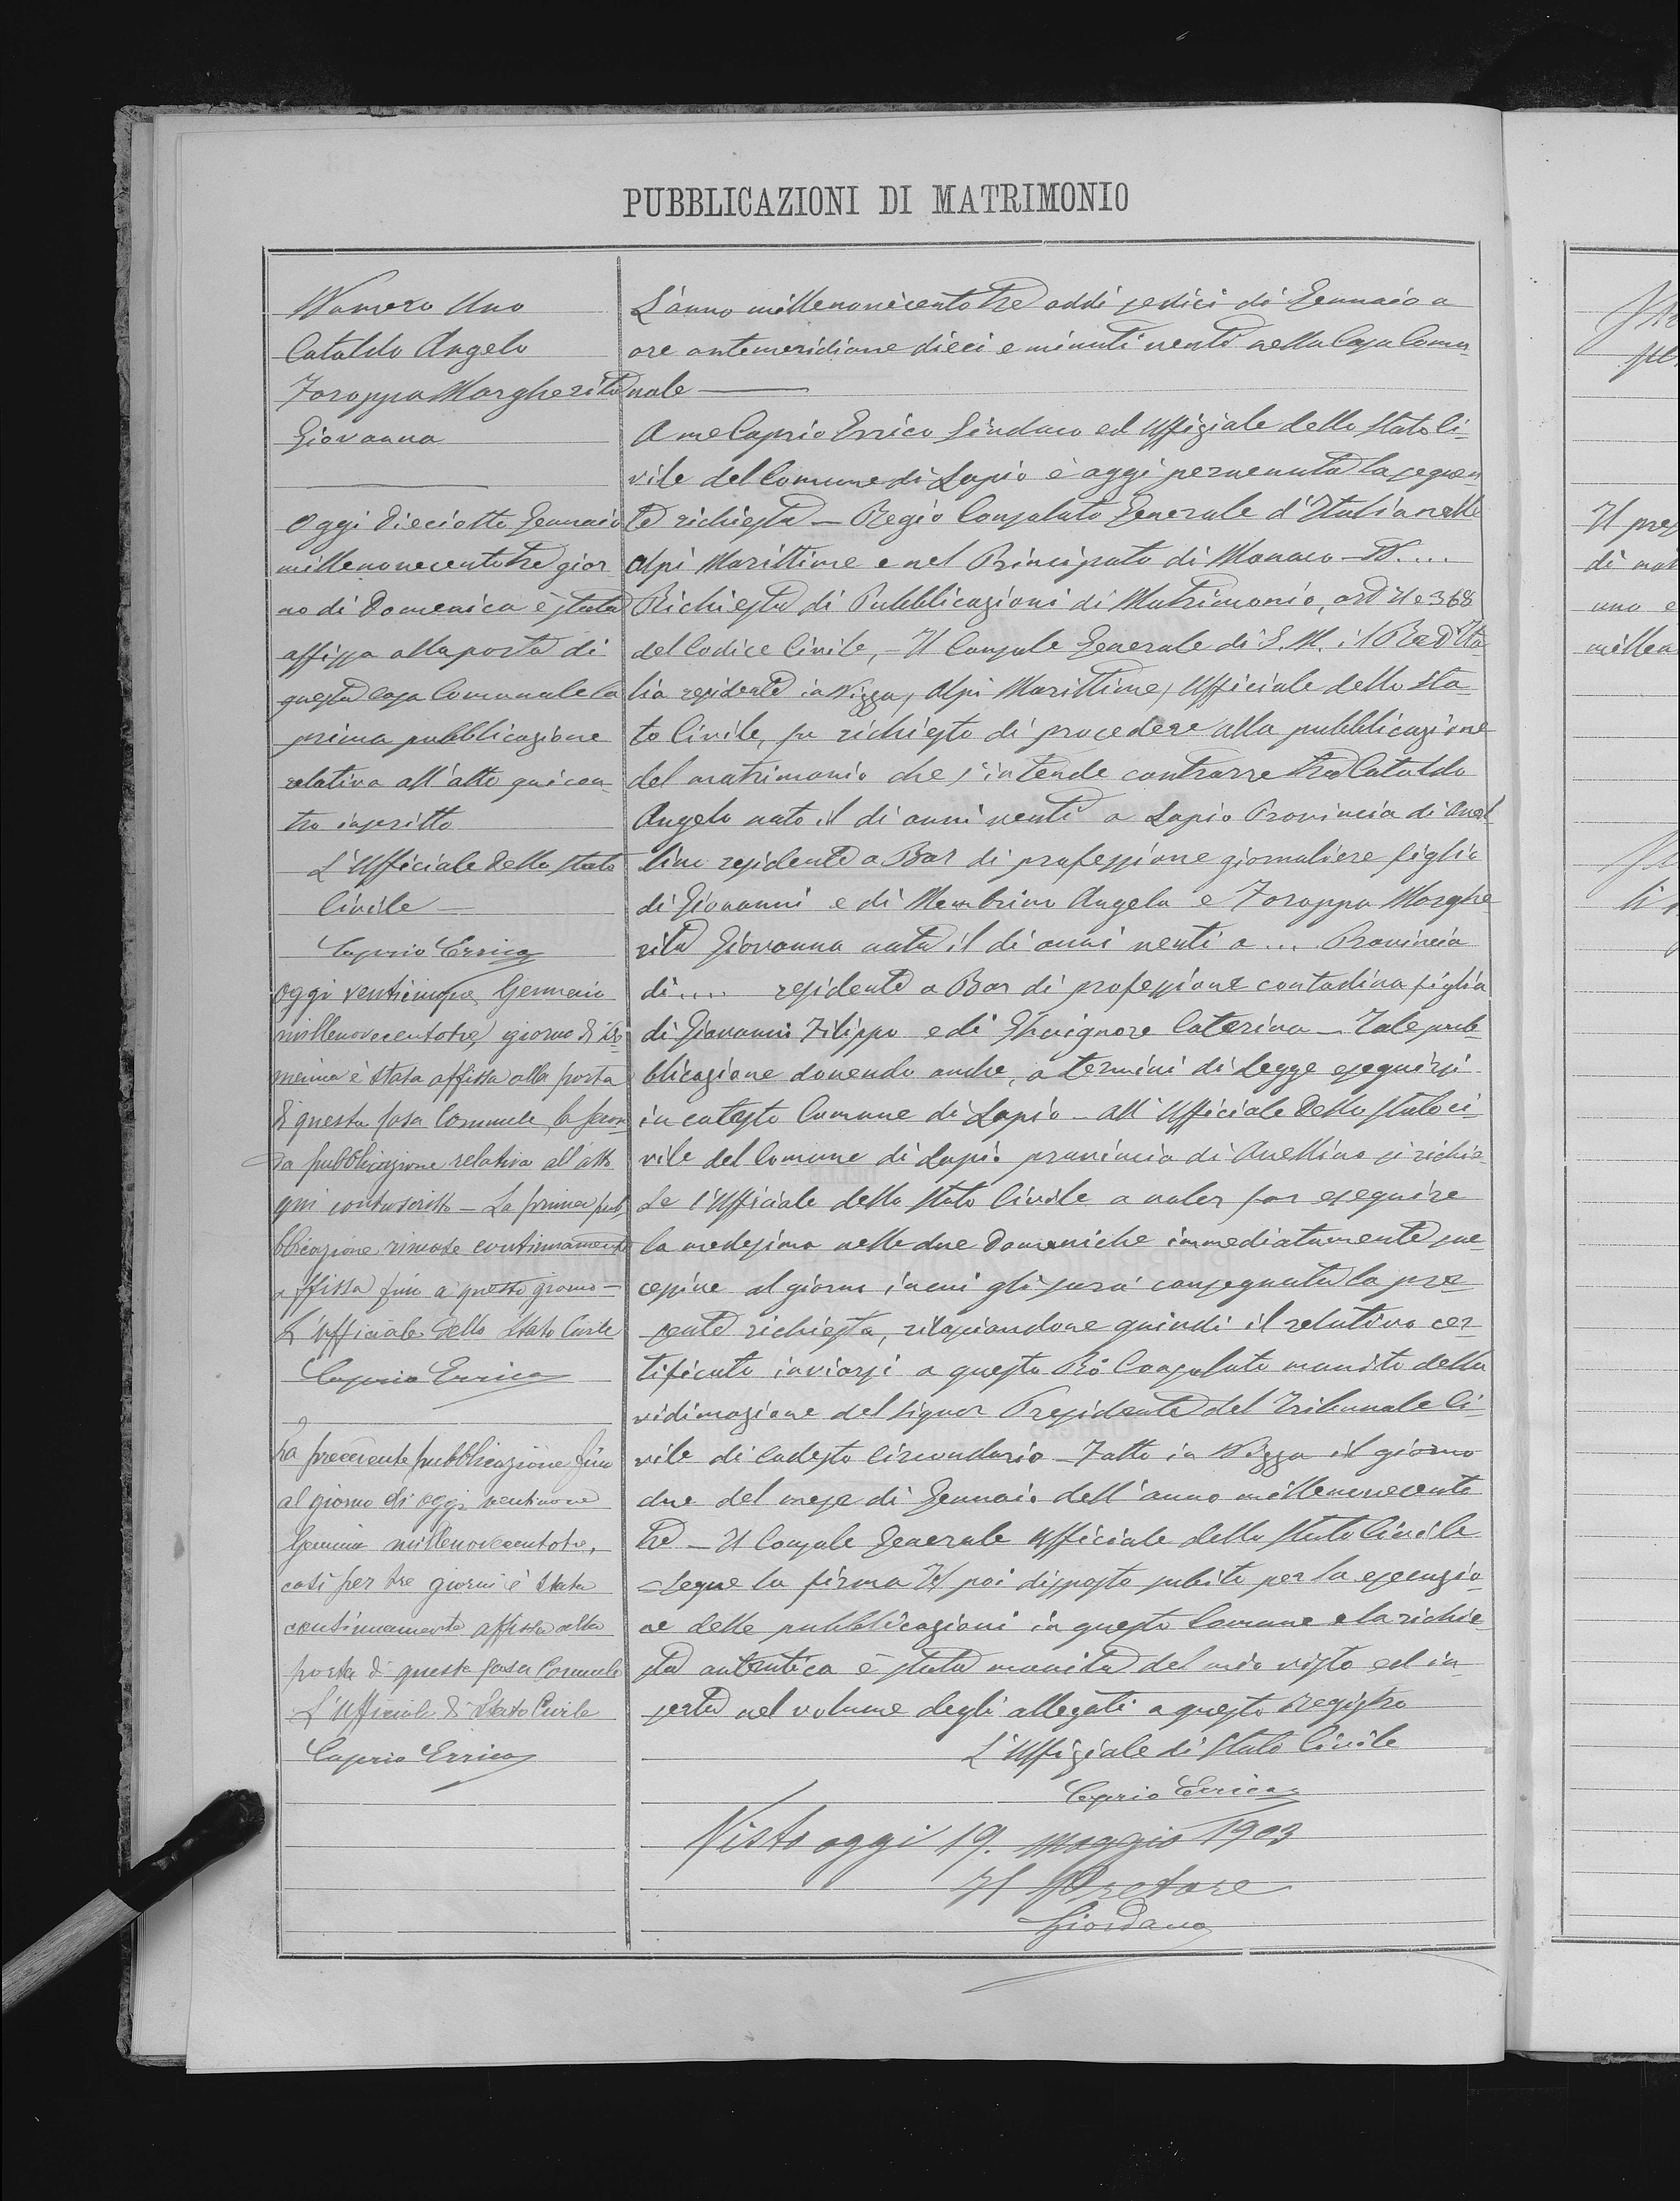 PUBBLICAZIONI DI MATRIMONIO
Numero Uno
Cataldo Angelo
Foroppa Margherita
Giovanna
Oggi dieciotto Gennaio
millenovecentotre gior-
no di Domenica è stata
affissa alla porta di
questa casa Comunale la
prima pubblicazione
relativa all'atto quicon-
tro inscritto
L'Ufficiale dello Stato
Civile
Caprio Errico
Oggi venticinque Gennaio
millenovecentotre, giorno di Do-
menica è stata affissa alla porta
di questa casa Comunale, la secon-
da pubblicazione relativa all'atto
qui controscritto - La prima pub-
blicazione rimase continuamente
affissa fino a questo giorno -
L'Ufficiale dello Stato Civile
Caprio Errico
La precedente pubblicazione fino
al giorno di oggi ventinove
Gennaio millenovecentotre,
così per tre giorni è stata
continuamente affissa alla
porta di questa casa Comunale
L'Ufficiale di Stato Civile
Caprio Errico
L'anno millenovecentotre addì sedici di Gennaio a
ore antemeridiane dieci e minuti venti nella Casa Comu-
nale
A me Caprio Errico Sindaco ed Uffiziale dello Stato Ci-
vile del Comune di Lapio è oggi pervenuta la seguen-
te richiesta - Regio Consolato Generale d'Italia nelle
Alpi Marittime e nel Principato di Monaco - N....
Richiesta di Pubblicazioni di Matrimonio, art 71 e 368
del Codice Civile, - Il Console Generale di S. M. il Re d'Ita-
lia residente in Nizza, Alpi Marittime, Ufficiale dello Sta-
to Civile, fu richiesto di procedere alla pubblicazione
del matrimonio che s'intende contrarre tra Cataldo
Angelo nato il di anni venti a Lapio Provincia di Avel-
lino residente a Bar di professione giornaliere figlio
di Giovanni e di Membrino Angela e Foroppa Marghe
rita Giovanna nata il di anni venti a ... Provincia
di .... residente a Bar di professione contadina figlia
di Giovanni Filippo e di Caterina - Tale pub-
blicazione dovendo anche, a termini di Legge eseguirsi
in cotesto Comune di Lapio - All'Ufficiale dello Stato ci-
vile del Comune di Lapio provincia di Avellino si richie-
de l'Ufficiale dello Stato Civile a voler far eseguire
la medesima nelle due Domeniche immediatamente suc-
cessive al giorno in cui gli sarà consegnata la pre-
sente richiesta, rilasciandone quindi il relativo cer-
tificato inviarsi a questo Ro Consolato munito della
vidimazione del Signor Presidente del Tribunale Ci-
vile di Codesto Circondario - Fatto in Nizza il giorno
due del mese di Gennaio dell'anno millenovecento
tre - Il Console Generale Ufficiale dello Stato Civile
Segue la firma Ho poi disposto subito per la esecuzio-
ne delle pubblicazioni in questo Comune e la richie
sta autentica è stata munita del mio visto ed in-
serta nel volume degli allegati a questo registro
L'Uffiziale di Stato Civile
Caprio Errico
Visto oggi 19. maggio 1903
Il Pretore
Giordano